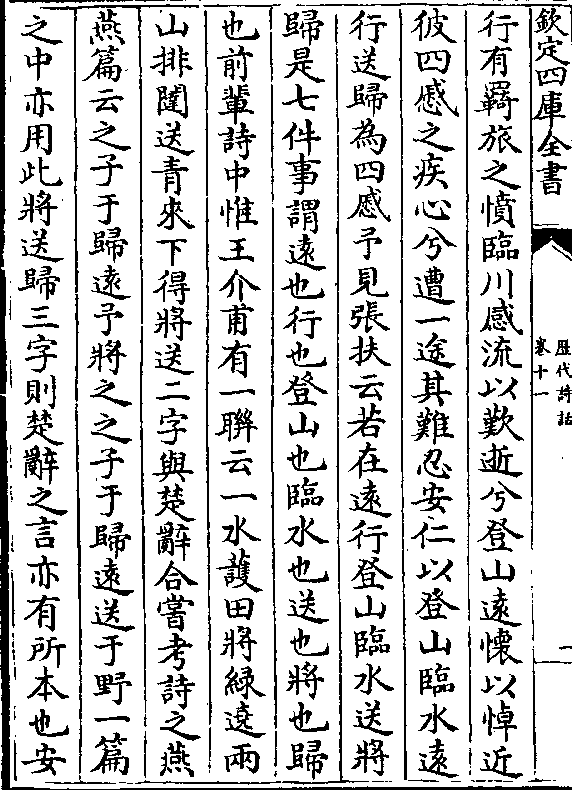 欽定四庫全書
歷代詩話
卷十一
一
行有羇旅之憤臨川感流以歎逝兮登山遠懷以悼近
彼四慼之疾心兮遭一途其難忍安仁以登山臨水遠
行送歸為四慼予見張扶云若在遠行登山臨水送將
歸是七件事謂遠也行也登山也臨水也送也將也歸
也前輩詩中惟王介甫有一聯云一水護田將綠遶兩
山排闥送青來下得將送二字與楚辭合嘗考詩之燕
燕篇云之子于歸遠予將之之子于歸遠送于野一篇
之中亦用此將送歸三字則楚辭之言亦有所本也安